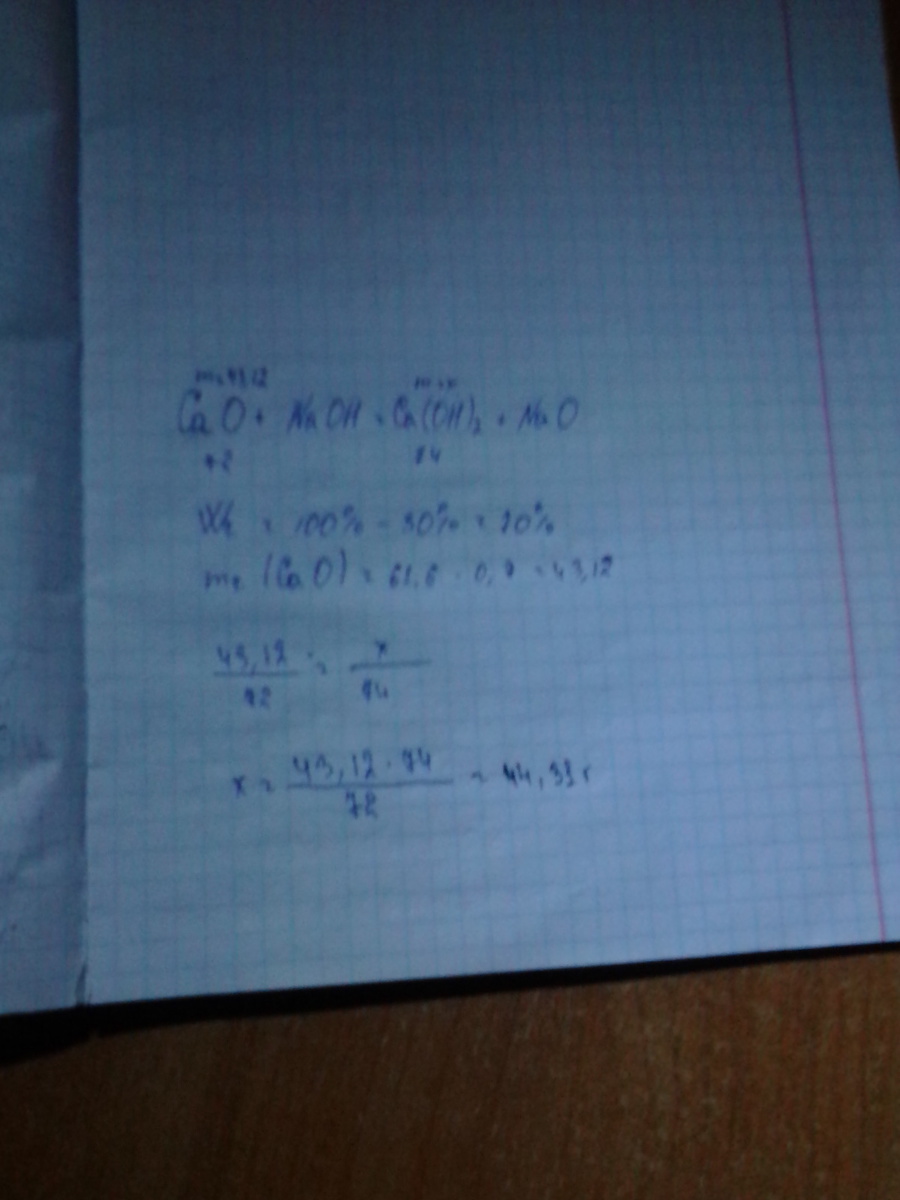 m=43,12 m=x
CaO + NaOH = Ca(OH)₂ + NaO
72 74
= 100% - 30% = 70%
(CaO) = 61,6 · 0,7 = 43,12
43,12 / 72 = x / 74
x = 43,12 · 74 / 72 = 44,31 г